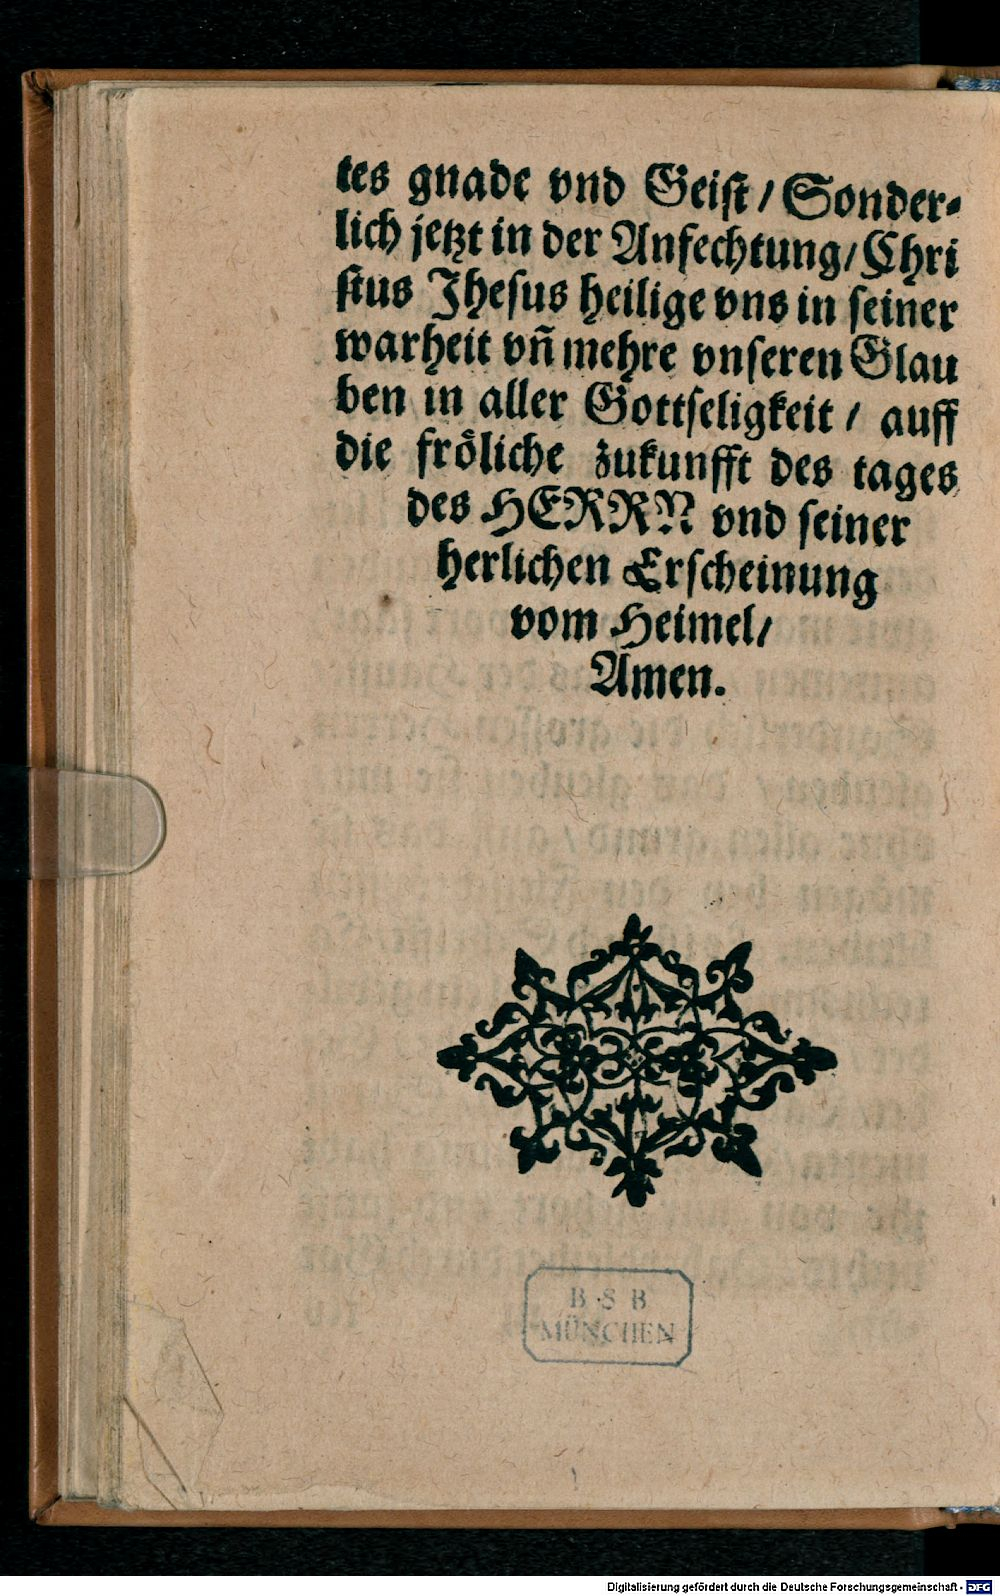 tes gnade vnd Geist / Sonder-
lich jetzt in der Anfechtung / Chri
stus Jhesus heilige vns in seiner
warheit vñ mehre vnseren Glau
ben in aller Gottseligkeit / auff
die fröliche zukunfft des tages
des HERRN vnd seiner
herlichen Erscheinung
vom Heimel /
Amen.
B S B
MÜNCHEN
Digitalisierung gefördert durch die Deutsche Forschungsgemeinschaft - DFG